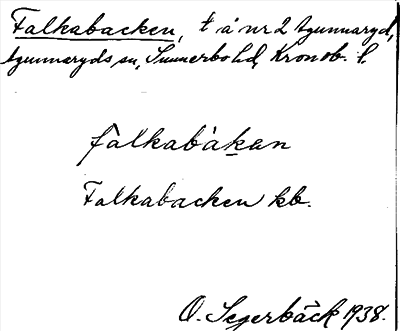 Falkabacken, t å nr 2 Agunnaryd,
Agunnaryds sn, Sunnerbo hd, Kronob. l.
fàlkabàkan
Falkabacken kb.
O. Segerbäck 1938.